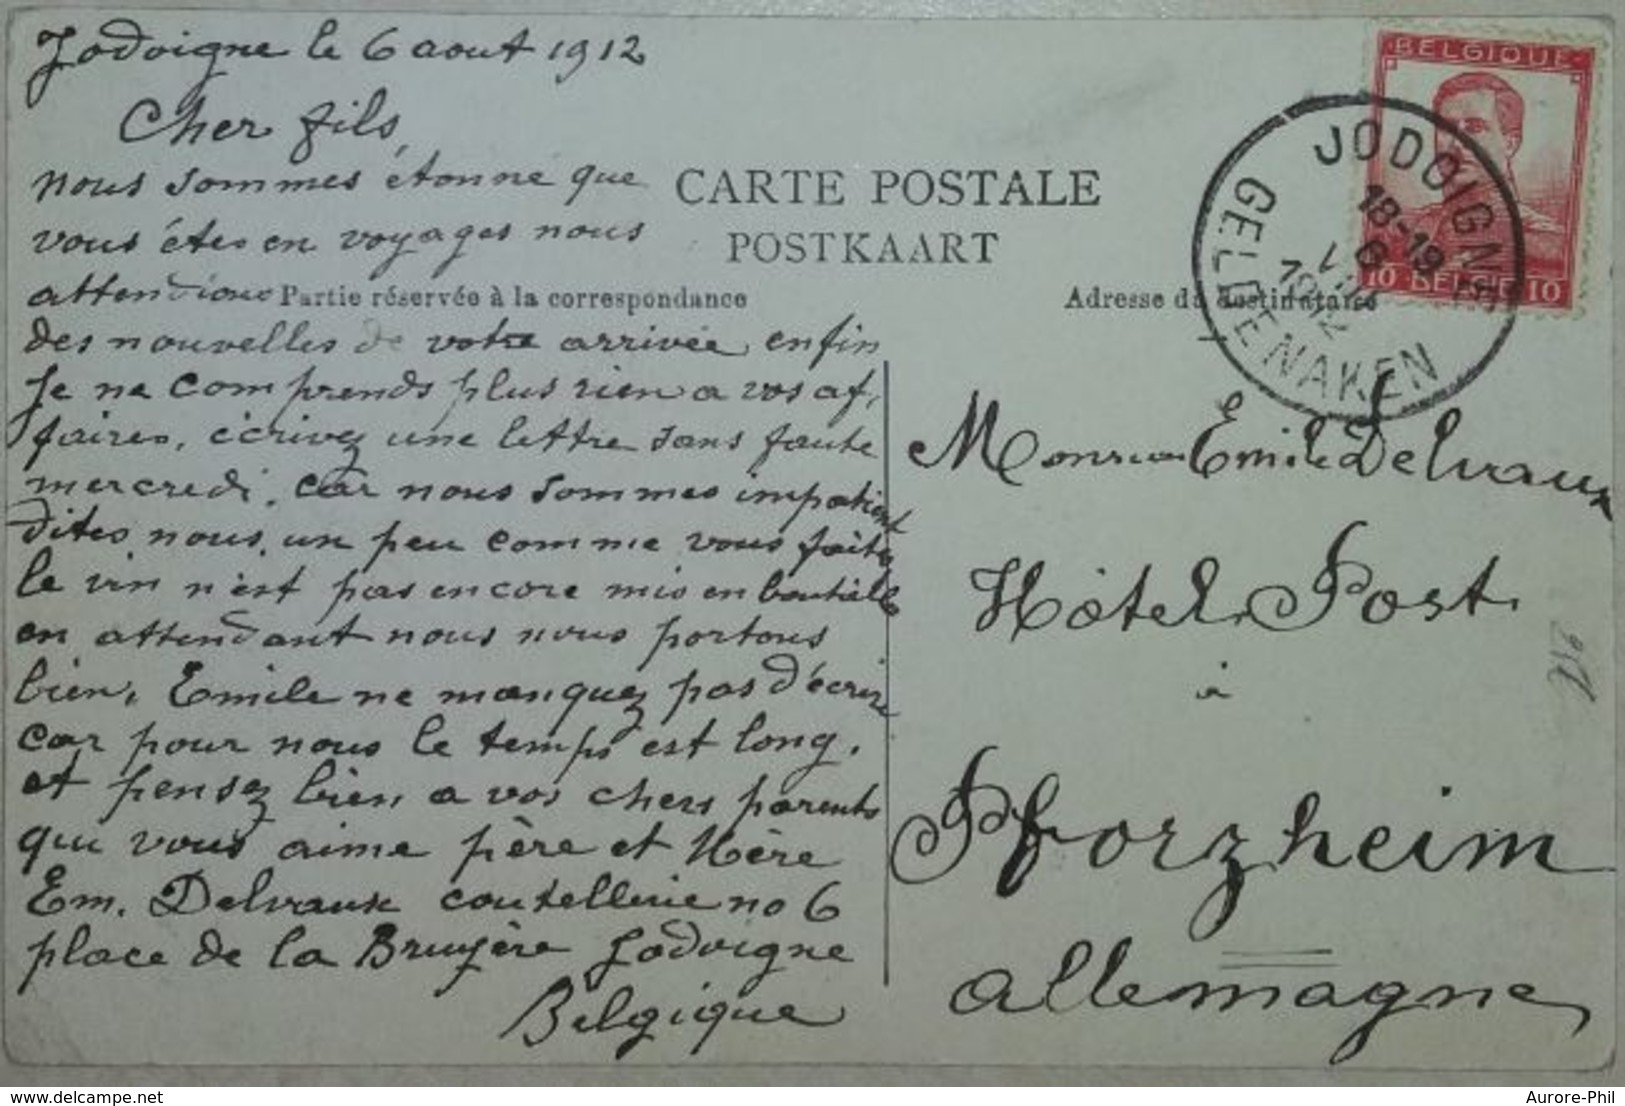 Jodoigne le 6 aout 1912
Cher fils,
nous sommes étonné que
vous étes en voyages nous
attendions
des nouvelles de votre arrivée enfin
Je ne comprends plus rien a vos af-
faires, écrivez une lettre sans faute
mercredi, car nous sommes impatient
dites nous un peu comme vous faites
le vin n'est pas encore mis en bouteille
en attendant nous nous portons
bien, Emile ne manquez pas d'écrire
car pour nous le temps est long,
et pensez bien a vos chers parents
qui vous aime père et Mère
Em. Delvaux coutellerie no 6
place de la Bruyère Jodoigne
Belgique
CARTE POSTALE
POSTKAART
Partie réservée à la correspondance
Adresse du destinataire
BELGIQUE
10 BELGIË 10
JODOIGNE
18-19
6
1912
GELDENAKEN
Monsieur Emile Delvaux
Hôtel Post
à
Pforzheim
allemagne
delcampe.net
Aurore-Phil